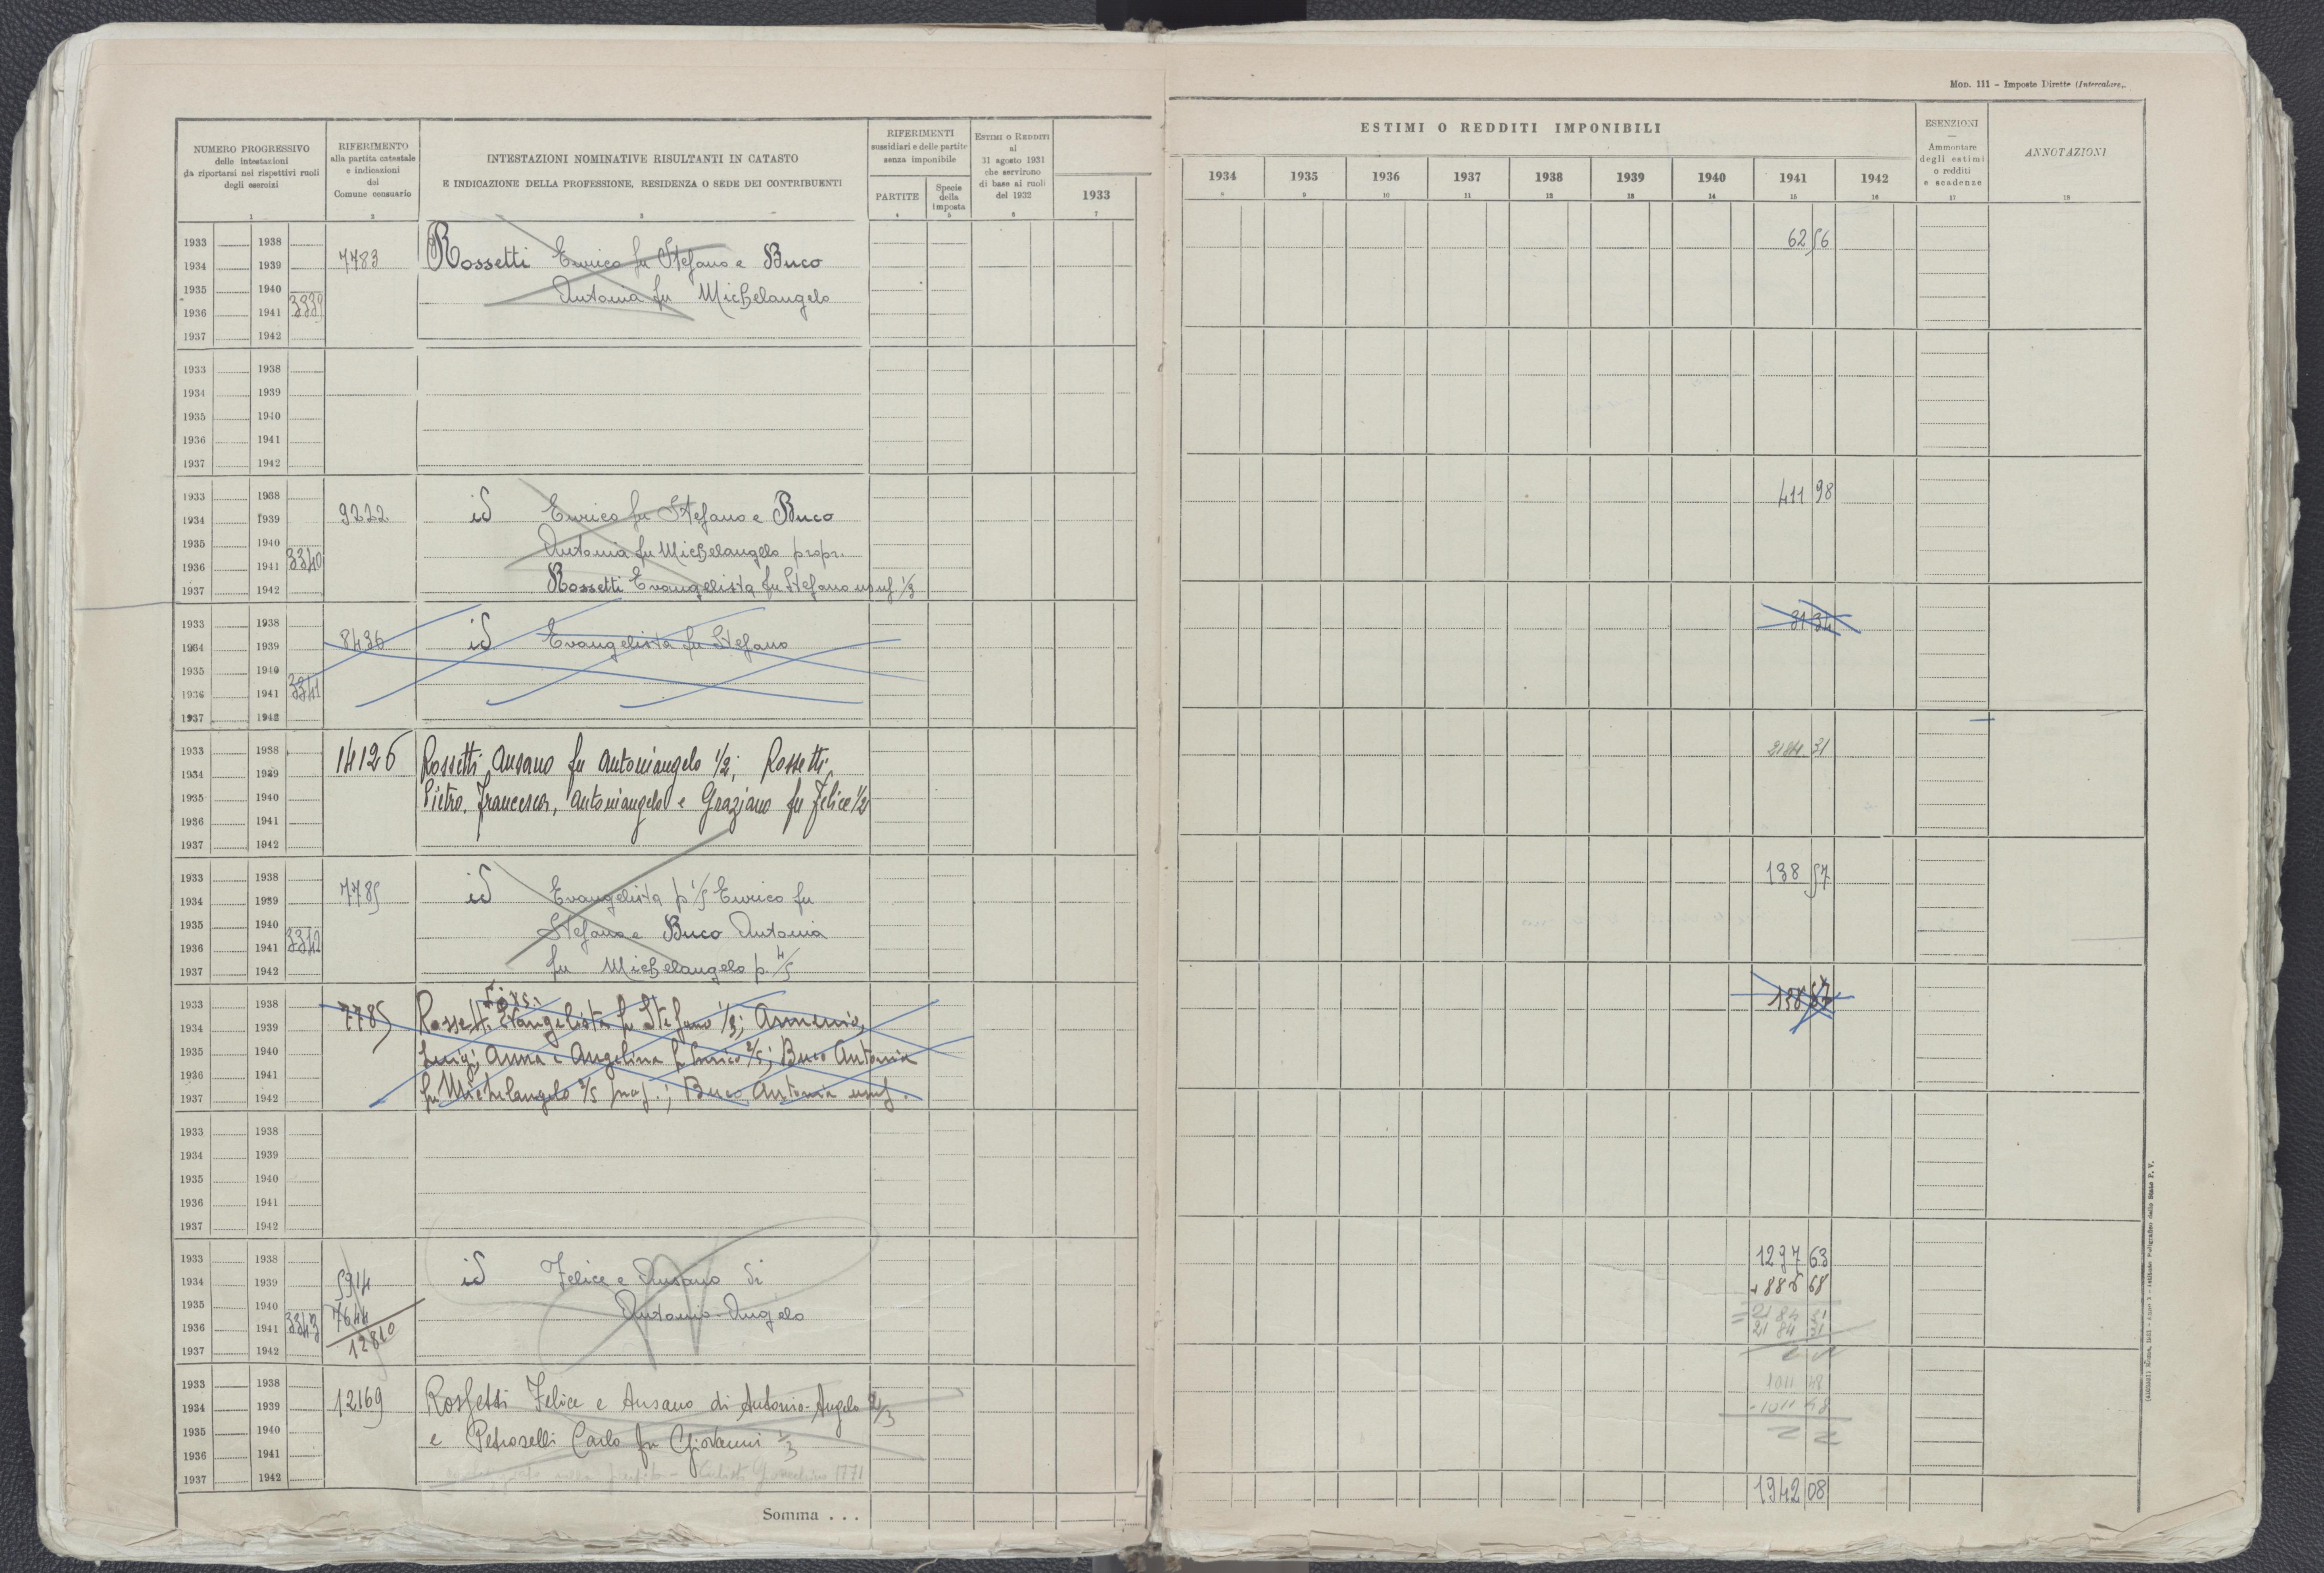 Mod. 111 - Imposte Dirette (Intercalare).
NUMERO PROGRESSIVO
delle intestazioni
da riportarsi nei rispettivi ruoli
degli esercizi
1
RIFERIMENTO
alla partita catastale
e indicazioni
del
Comune censuario
2
INTESTAZIONI NOMINATIVE RISULTANTI IN CATASTO
E INDICAZIONE DELLA PROFESSIONE, RESIDENZA O SEDE DEI CONTRIBUENTI
3
RIFERIMENTI
sussidiari e delle partite
senza imponibile
PARTITE
4
Specie
della
imposta
5
ESTIMI O REDDITI
al
31 agosto 1931
che servirono
di base ai ruoli
del 1932
6
1933
7
ESTIMI O REDDITI IMPONIBILI
1934 1935 1936 1937 1938 1939 1940 1941 1942
8 9 10 11 12 13 14 15 16
ESENZIONI
—
Ammontare
degli estimi
o redditi
e scadenze
17
ANNOTAZIONI
18
1933 1938 62 56
1934 1939 7783 Rossetti Enrico fu Stefano e Buco
1935 1940 Antonia fu Michelangelo
1936 1941 3339
1937 1942
1933 1938
1934 1939
1935 1940
1936 1941
1937 1942
1933 1938 411 98
1934 1939 9222 id Enrico fu Stefano e Buco
1935 1940 Antonia fu Michelangelo propr.
1936 1941 3340
1937 1942 Rossetti Evangelista fu Stefano usuf. 1/3
1933 1938 31 34
1934 1939 8436 id Evangelista fu Stefano
1935 1940
1936 1941 3341
1937 1942
1933 1938 2184 31
1934 1939 14126 Rossetti Ansano fu Antoniangelo 1/2; Rossetti
1935 1940 Pietro, Francesca, Antoniangelo e Graziano fu Felice 1/2
1936 1941
1937 1942
1933 1938 138 57
1934 1939 7785 id Evangelista p 1/5 Enrico fu
1935 1940 Stefano e Buco Antonia
1936 1941 3342
1937 1942 fu Michelangelo p. 4/5
1933 1938 138 57
1934 1939 7785 Rossetti Evangelista fu Stefano 1/3; Armenio,
1935 1940 Luigi, Anna e Angelina fu Enrico 2/5; Buco Antonia
1936 1941
1937 1942 fu Michelangelo 2/5 prop.; Buco Antonia usuf.
1933 1938
1934 1939
1935 1940
1936 1941
1937 1942
1933 1938 1297 63
1934 1939 5914 id Felice e Ansano di + 886 68
1935 1940 7644 Antonio-Angelo = 2184 31
1936 1941 3343 12810 2184 31
1937 1942
1933 1938 1011 48
1934 1939 12169 Rossetti Felice e Ansano di Antonio-Angelo 2/3 - 1011 48
1935 1940 e Petroselli Carlo fu Giovanni 1/3
1936 1941
1937 1942
1942 08
Somma . . .